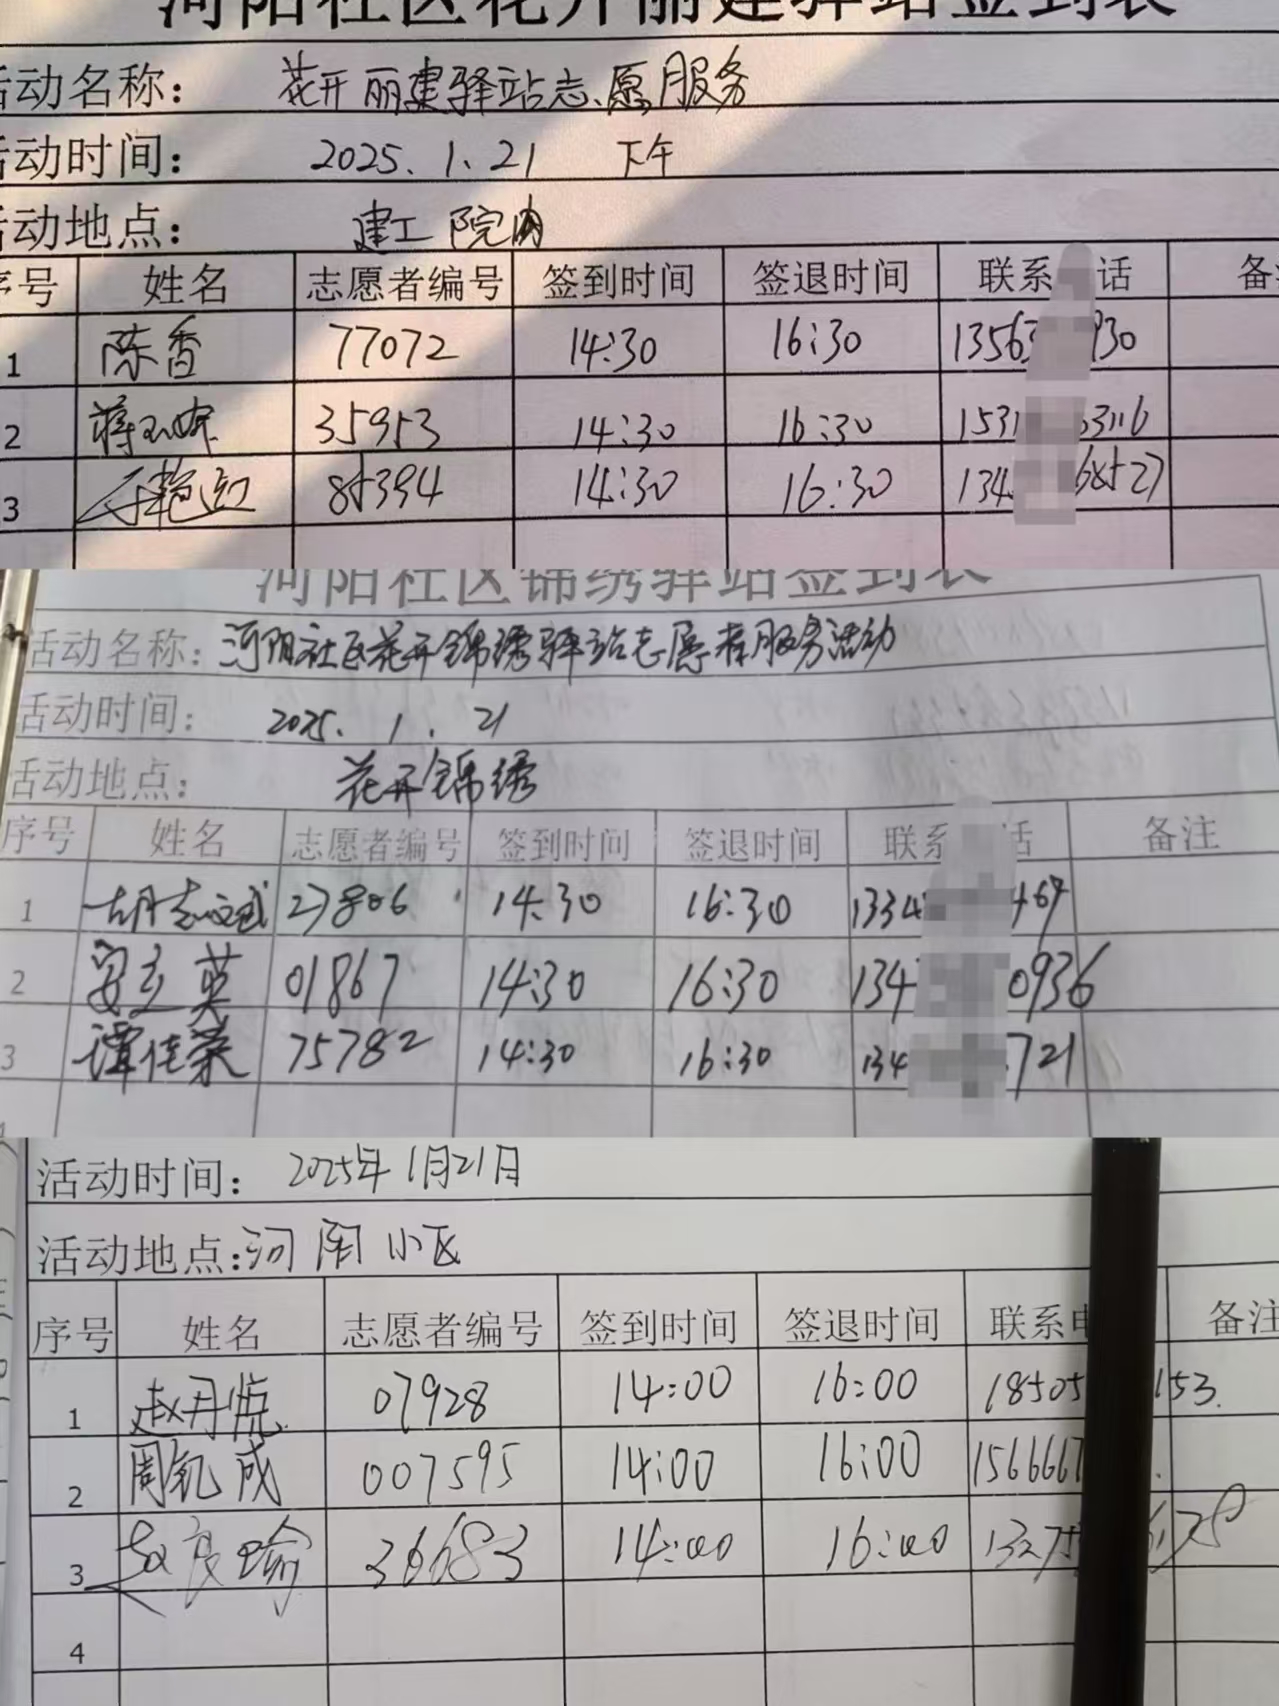 河阳社区花开丽建驿站签到表
活动名称: 花开丽建驿站志愿服务
活动时间: 2025.1.21 下午
活动地点: 建工院内
序号 姓名 志愿者编号 签到时间 签退时间 联系 话 备
1 陈香 77072 14:30 16:30 1356 930
2 蒋 35953 14:30 16:30 1531 3116
3 85394 14:30 16:30 134 68527
河阳社区锦绣驿站签到表
活动名称: 河阳社区花开锦绣驿站志愿者服务活动
活动时间: 2025. 1. 21
活动地点: 花开锦绣
序号 姓名 志愿者编号 签到时间 签退时间 联系 话 备注
1 胡志斌 27806 14:30 16:30 1334 467
2 安立英 01867 14:30 16:30 134 0936
3 谭佳荣 75782 14:30 16:30 134 721
活动时间: 2025年1月21日
活动地点: 河阳小区
序号 姓名 志愿者编号 签到时间 签退时间 联系 备注
1 赵丹悦 07928 14:00 16:00 18505 153.
2 周凯成 007595 14:00 16:00 1566667
3 36683 14:00 16:00 13275
4